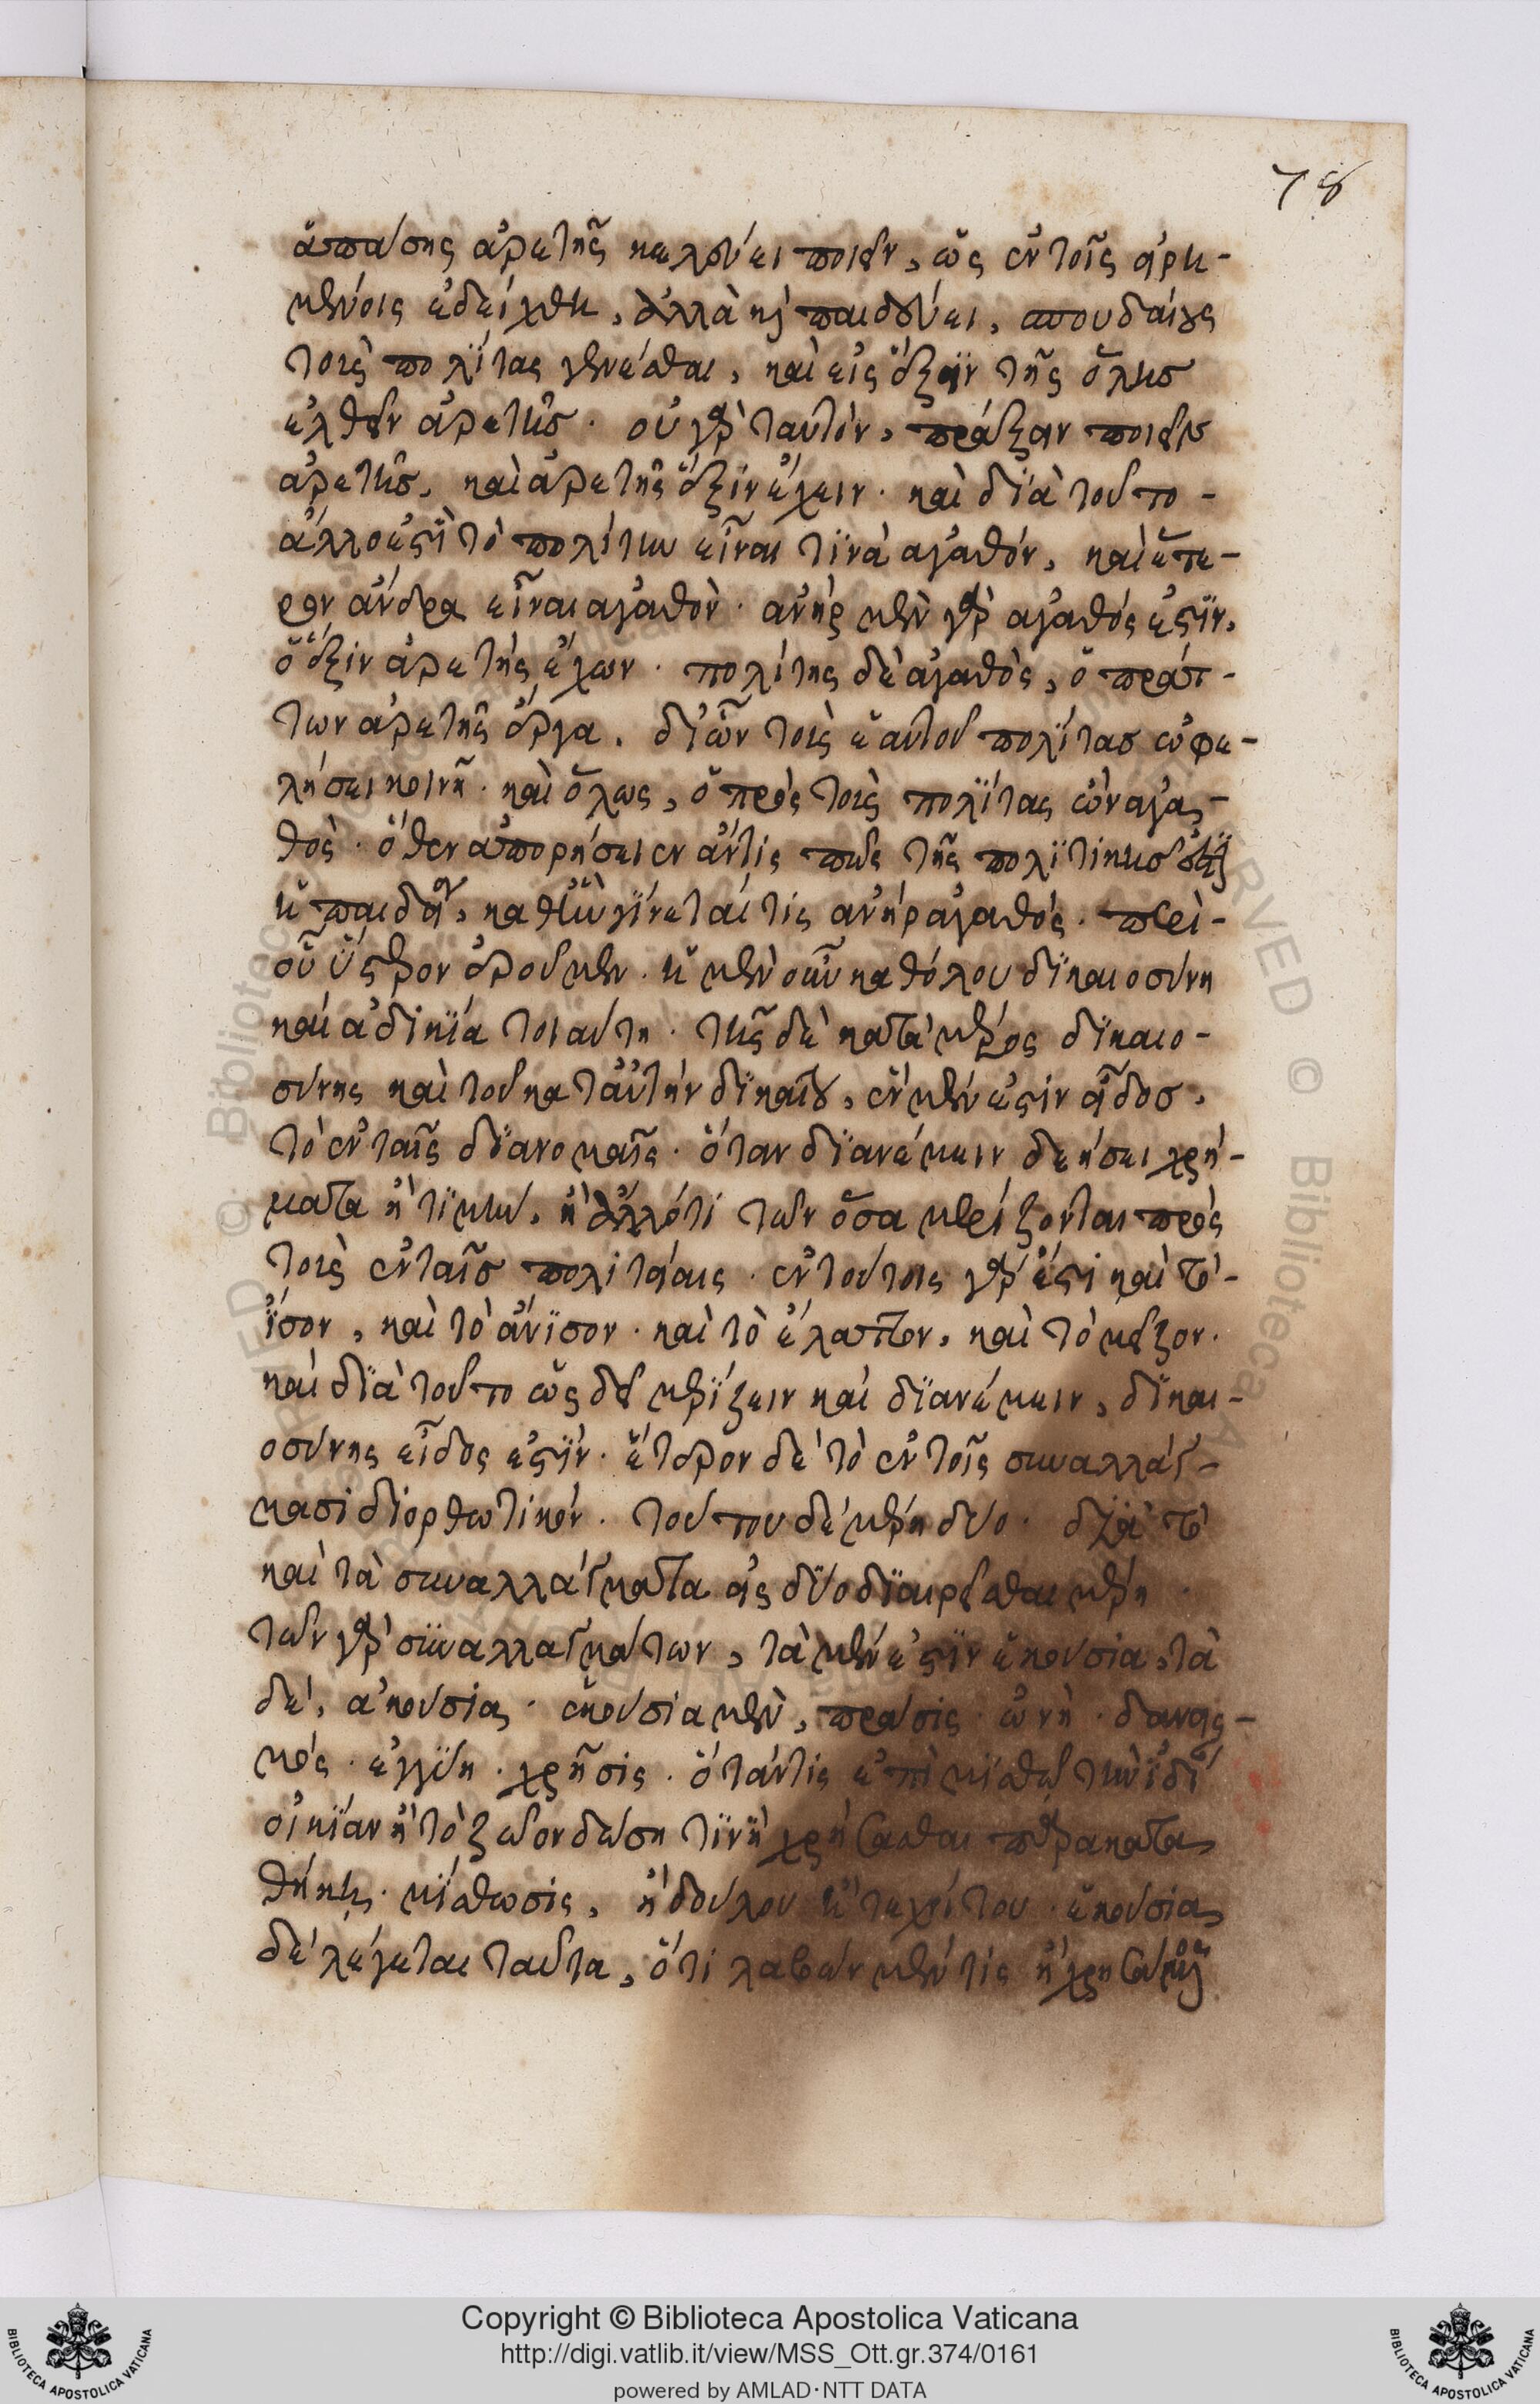 78
ἁπάσης ἀρετῆς κελεύει ποιεῖν, ὡς ἐν τοῖς εἰρη-
μένοις ἐδείχθη, ἀλλὰ καὶ παιδεύει, σπουδαίους
τοὺς πολίτας γενέσθαι, καὶ εἰς ἕξιν τῆς ὅλης
ἐλθεῖν ἀρετῆς. οὐ γὰρ ταυτὸν, πράξειν ποιεῖν
ἀρετῆς, καὶ ἀρετῆς ἕξιν ἔχειν. καὶ διὰ τοῦτο-
ἄλλο ἐστὶ τὸ πολίτην εἶναι τινὰ ἀγαθόν, καὶ ἕτε-
ρον ἄνδρα εἶναι ἀγαθὸν. ἀνὴρ μὲν γὰρ ἀγαθός ἐστιν,
ὁ ἕξιν ἀρετῆς ἔχων. πολίτης δὲ ἀγαθὸς, ὁ πράτ-
των ἀρετῆς ἔργα. δι' ὧν τοὺς ἑαυτοῦ πολίτας ὠφε-
λήσει κοινῇ. καὶ ὅλως, ὁ πρὸς τοὺς πολίτας ὢν ἀγα-
θὸς. ὅθεν ἀπορήσειεν ἄν τις πῶς τῆς πολιτικῆς ἐστὶ
ἡ παιδεία, καθ' ἣν γίνεταί τις ἀνὴρ ἀγαθός. περὶ-
οὗ ὕστερον ἐροῦμεν. ἡ μὲν οὖν καθόλου δικαιοσύνη
καὶ ἀδικία τοιαύτη. τῆς δὲ κατὰ μέρος δικαιο-
σύνης καὶ τοῦ κατ' αὐτὴν δικαίου, ἓν μέν ἐστιν εἶδος,
τὸ ἐν ταῖς διανομαῖς. ὅταν διανέμειν δεήσει χρή-
ματα ἢ τιμὴν, ἢ ἄλλό τι τῶν ὅσα μερίζονται πρὸς
τοὺς ἐν ταῖς πολιτείαις. ἐν τούτοις γὰρ ἔστι καὶ τὸ-
ἴσον, καὶ τὸ ἄνισον. καὶ τὸ ἔλαττον, καὶ τὸ μεῖζον.
καὶ διὰ τοῦτο ὡς δεῖ μερίζειν καὶ διανέμειν, δικαι-
οσύνης εἶδος ἐστίν. ἕτερον δὲ τὸ ἐν τοῖς συναλλάγ-
μασι διορθωτικόν. τούτου δὲ μέρη δύο. διὰ τὸ
καὶ τὰ συναλλάγματα εἰς δύο διαιρεῖσθαι μέρη.
τῶν γὰρ συναλλαγμάτων, τὰ μέν ἐστιν ἑκούσια, τὰ
δὲ, ἀκούσια. ἑκούσια μὲν, πρᾶσις. ὠνὴ. δανεις-
μός. ἐγγύη. χρῆσις. ὅταν τις ἐπὶ μισθῷ τὴν ἰδίαν
οἰκίαν ἢ τὸ ζῶον δώσῃ τινὶ χρήσασθαι παρακατα
θήκη. μίσθωσις, ἢ δούλου ἢ τεχνίτου. ἑκούσια
δὲ λέγεται ταῦτα, ὅτι λαβών μέν τις ἢ χρησάμενος
Copyright © Biblioteca Apostolica Vaticana
http://digi.vatlib.it/view/MSS_Ott.gr.374/0161
powered by AMLAD·NTT DATA